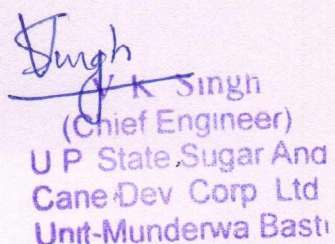 Singh
V K Singh
(Chief Engineer)
U P State Sugar And
Cane Dev Corp Ltd
Unit-Munderwa Basti